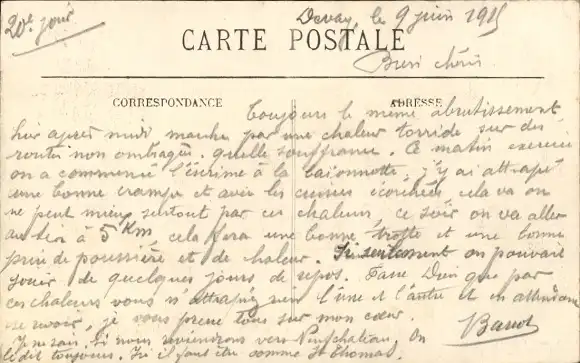 20e jour
Devay, le 9 juin 1915
CARTE POSTALE
Bien chéris
CORRESPONDANCE
ADRESSE
Toujours le même abrutissement
hier après midi marche par une chaleur torride sur des
routes non ombragées. quelle souffrance. Ce matin exercice
on a commencé l'escrime à la baïonnette, j'y ai attrapé
une bonne crampe et avec les cuisses écorchées cela va on
ne peut mieux surtout par ces chaleurs, ce soir on va aller
au tir à 5 Km cela fera une bonne trotte et une bonne
prise de poussière et de chaleur. Si seulement on pouvait
jouir de quelques jours de repos. Fasse Dieu que par
ces chaleurs vous n'attrapiez rien l'une et l'autre et en attendant
se revoir, je vous presse tous sur mon cœur.
Je ne sais si nous reviendrons vers Neufchateau, On
le dit toujours. Ici il faut être comme St Thomas